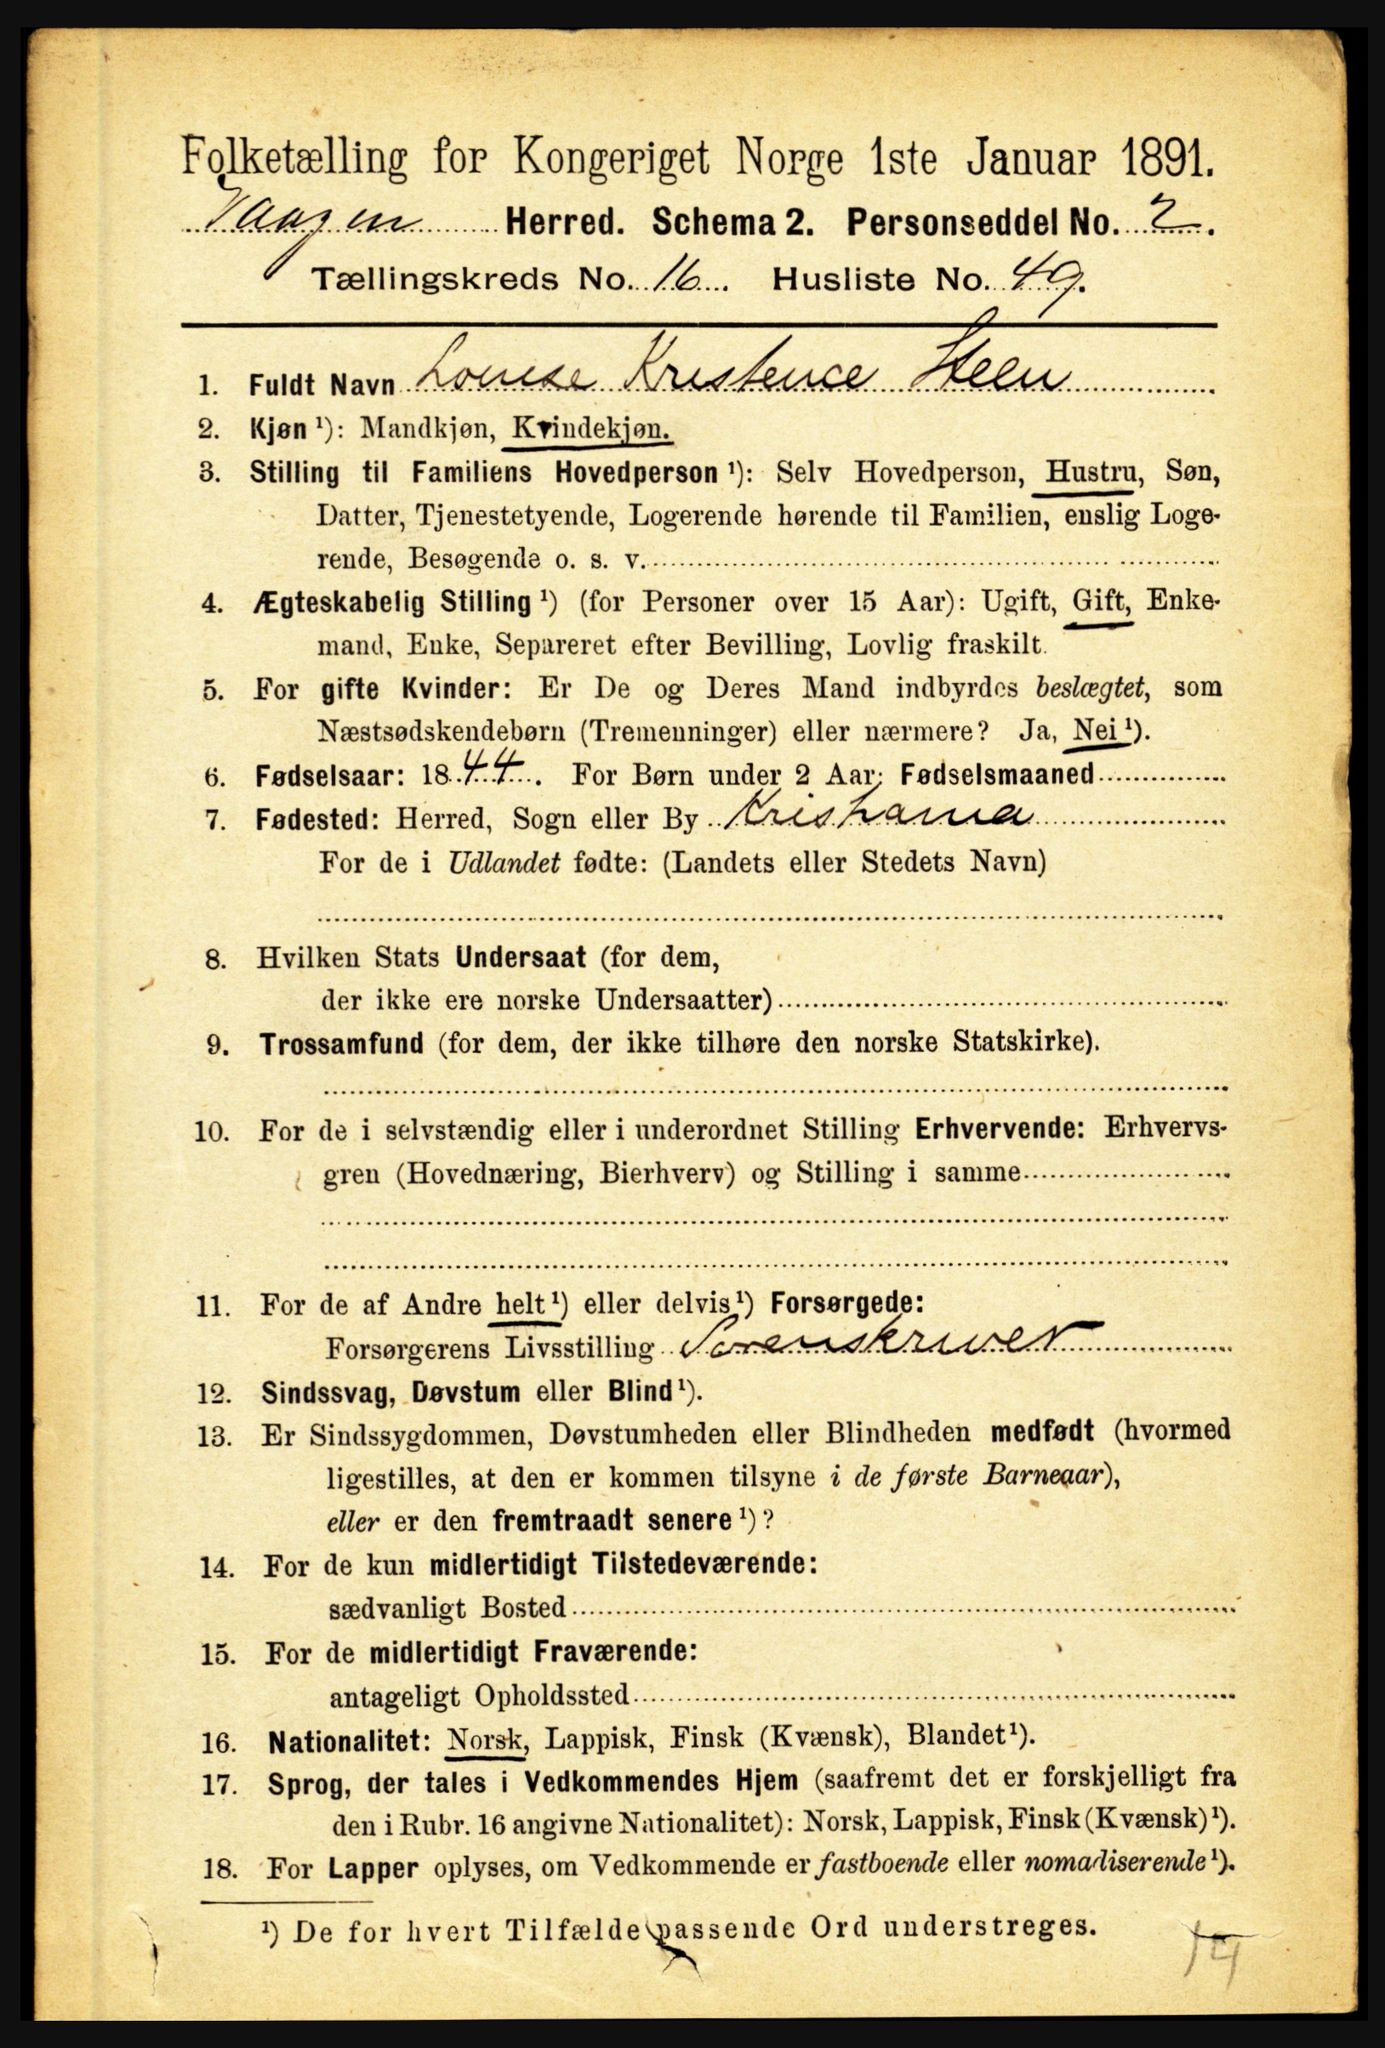 Folketælling for Kongeriget Norge 1ste Januar 1891.
Vaagen Herred. Schema 2. Personseddel No. 2.
Tællingskreds No. 16. Husliste No. 49.
1. Fuldt Navn Louise Kristence Steen
2. Kjøn ¹): Mandkjøn, Kvindekjøn.
3. Stilling til Familiens Hovedperson ¹): Selv Hovedperson, Hustru, Søn,
Datter, Tjenestetyende, Logerende hørende til Familien, enslig Loge-
rende, Besøgende o. s. v.
4. Ægteskabelig Stilling ¹) (for Personer over 15 Aar): Ugift, Gift, Enke-
mand, Enke, Separeret efter Bevilling, Lovlig fraskilt.
5. For gifte Kvinder: Er De og Deres Mand indbyrdes beslægtet, som
Næstsødskendebørn (Tremenninger) eller nærmere? Ja, Nei ¹).
6. Fødselsaar: 1844. For Børn under 2 Aar: Fødselsmaaned
7. Fødested: Herred, Sogn eller By Kristiania
For de i Udlandet fødte: (Landets eller Stedets Navn)
8. Hvilken Stats Undersaat (for dem,
der ikke ere norske Undersaatter)
9. Trossamfund (for dem, der ikke tilhøre den norske Statskirke).
10. For de i selvstændig eller i underordnet Stilling Erhvervende: Erhvervs-
gren (Hovednæring, Bierhverv) og Stilling i samme
11. For de af Andre helt ¹) eller delvis ¹) Forsørgede:
Forsørgerens Livsstilling Sorenskriver
12. Sindssvag, Døvstum eller Blind ¹).
13. Er Sindssygdommen, Døvstumheden eller Blindheden medfødt (hvormed
ligestilles, at den er kommen tilsyne i de første Barneaar),
eller er den fremtraadt senere ¹)?
14. For de kun midlertidigt Tilstedeværende:
sædvanligt Bosted
15. For de midlertidigt Fraværende:
antageligt Opholdssted
16. Nationalitet: Norsk, Lappisk, Finsk (Kvænsk), Blandet ¹).
17. Sprog, der tales i Vedkommendes Hjem (saafremt det er forskjelligt fra
den i Rubr. 16 angivne Nationalitet): Norsk, Lappisk, Finsk (Kvænsk) ¹).
18. For Lapper oplyses, om Vedkommende er fastboende eller nomadiserende ¹).
¹) De for hvert Tilfælde passende Ord understreges.
19